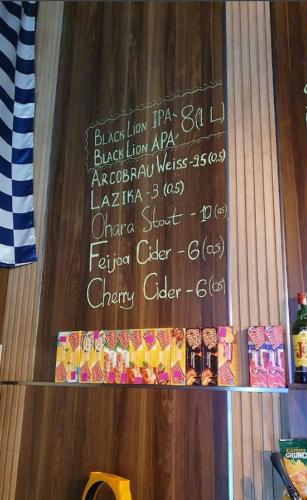 BLACK LION IPA - 8 (1 L)
BLACK LION APA
ARCOBRAU WEISS - 9.5 (0,5)
LAZIKA - 3 (0,5)
Ohara Stout - 10 (0,5)
Feijoa Cider - 6 (0,5)
Cherry Cider - 6 (0,5)